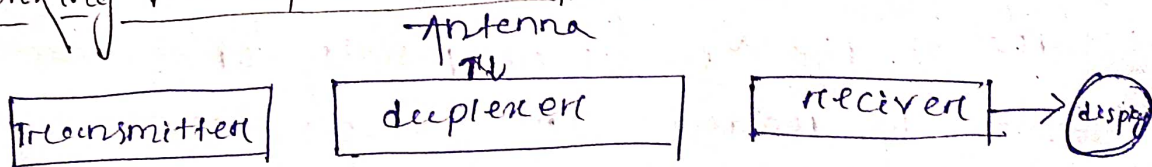 Antenna
Transmitter
deuplexer
reciver
display